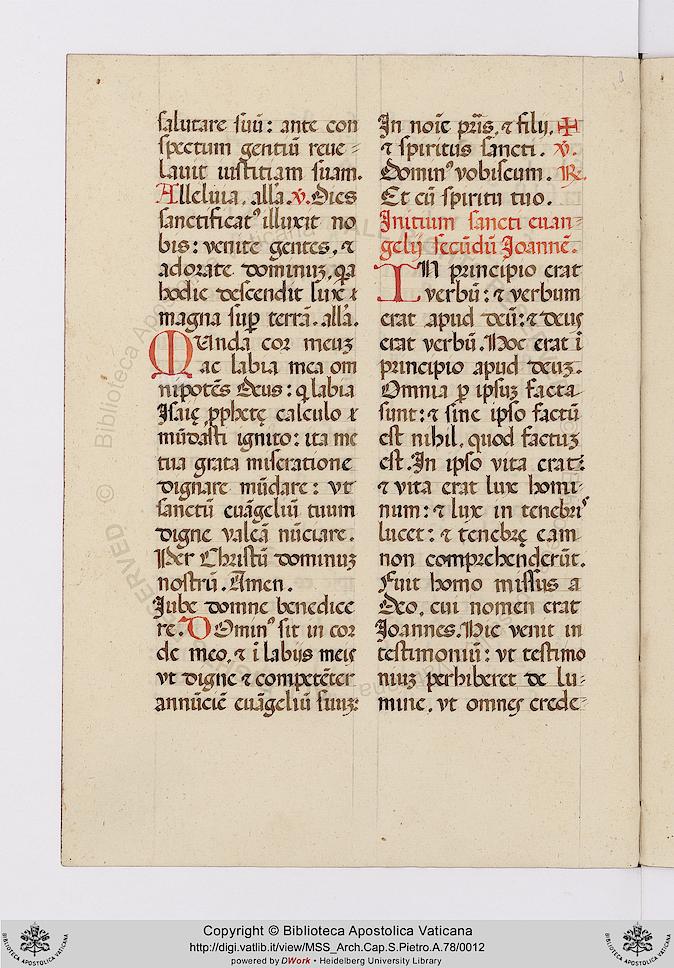 salutare suū: ante con
spectum gentiū reue-
lauit iustitiam suam.
Alleluia. alła. ℣. Dies
sanctificatꝰ illuxit no
bis: venite gentes, ⁊
adorate dominuꝫ, qa
hodie descendit lux
magna suꝑ terrā. alła.
MUnda cor meuꝫ
ac labia mea om
nipotēs Deus: q labia
Isaię ꝓphetę calculo
mūdasti ignito: ita me
tua grata miseratione
dignare mūdare: vt
sanctū euāgeliū tuum
digne valeā nūciare.
Per Christū dominuꝫ
nostrū. Amen.
Iube domne benedice
re. DOminꝰ sit in cor
de meo, ⁊ ī labijs meis
vt digne ⁊ competēter
annūciē euāgeliū suuꝫ.
In noīe prīs, ⁊ filij, ✠
⁊ spiritus sancti. ℣.
Dominꝰ vobiscum. ℟.
Et cū spiritu tuo.
Initium sancti euan-
gelij secūdū Joannē.
IN principio erat
verbū: ⁊ verbum
erat apud deū: ⁊ deus
erat verbū. Hoc erat ī
principio apud deuꝫ.
Omnia ꝑ ipsuꝫ facta
sunt: ⁊ sine ipso factū
est nihil, quod factuꝫ
est. In ipso vita erat:
⁊ vita erat lux homi-
num: ⁊ lux in tenebriꝰ
lucet: ⁊ tenebrę eam
non comprehenderūt.
Fuit homo missus a
Deo, cui nomen erat
Joannes. Hic venit in
testimoniū: vt testimo
niuꝫ perhiberet de lu-
mine, vt omnes crede-
Copyright © Biblioteca Apostolica Vaticana
http://digi.vatlib.it/view/MSS_Arch.Cap.S.Pietro.A.78/0012
powered by DWork • Heidelberg University Library
BIBLIOTECA APOSTOLICA VATICANA
BIBLIOTECA APOSTOLICA VATICANA